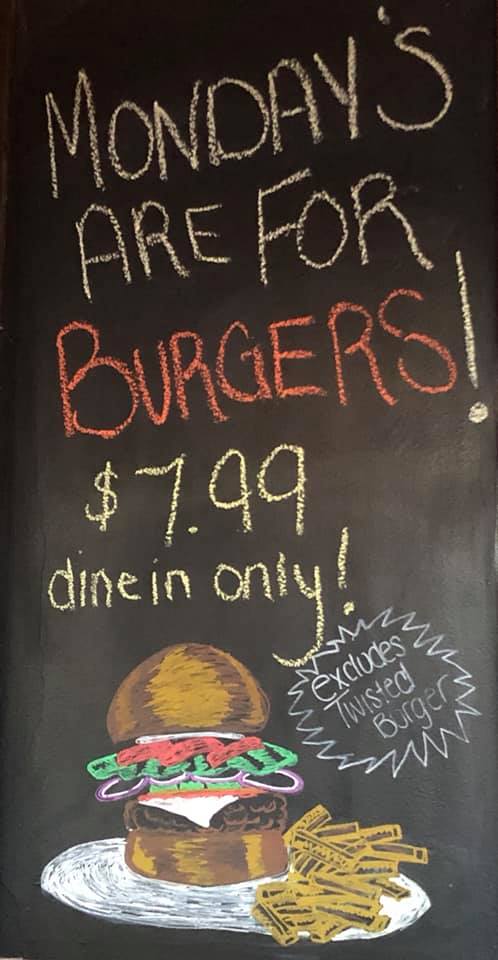 MONDAY'S
ARE FOR
BURGERS!
$7.99
dine in only!
excludes
Twisted
Burger